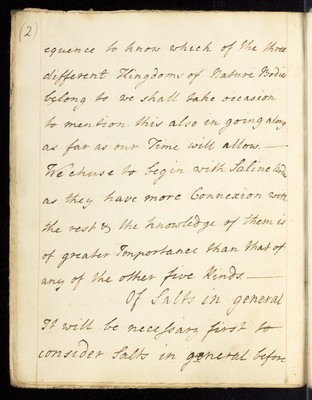 (2)
equence to know which of the three
different Kingdoms of Nature Bodies
belong to we shall take occasion
to mention this also in going along
as far as our Time will allow. —
We chuse to begin with Saline Bodies
as they have more Connexion with
the rest & the knowledge of them is
of greater Importance than that of
any of the other five Kinds. —
Of Salts in general
It will be necessary first to
consider Salts in general before